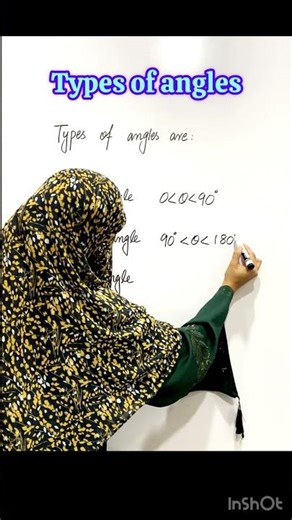 Types of angles
Types of angles are:
0<θ<90°
angle 90°<θ<180°
InShOt